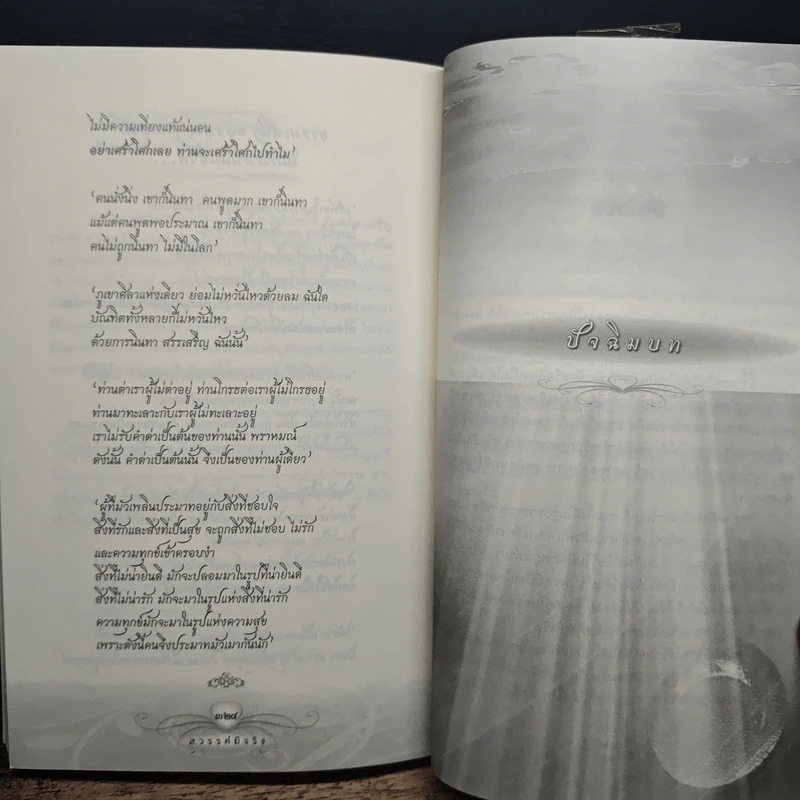 ไม่มีความเที่ยงแท้แน่นอน
อย่าเศร้าโศกเลย ท่านจะเศร้าโศกไปทำไม’
‘คนนั่งนิ่ง เขาก็นินทา คนพูดมาก เขาก็นินทา
แม้แต่คนพูดพอประมาณ เขาก็นินทา
คนไม่ถูกนินทา ไม่มีในโลก’
‘ภูเขาศิลาแท่งเดียว ย่อมไม่หวั่นไหวด้วยลม ฉันใด
บัณฑิตทั้งหลายก็ไม่หวั่นไหว
ด้วยการนินทา สรรเสริญ ฉันนั้น’
‘ท่านด่าเราผู้ไม่ด่าอยู่ ท่านโกรธต่อเราผู้ไม่โกรธอยู่
ท่านมาทะเลาะกับเราผู้ไม่ทะเลาะอยู่
เราไม่รับคำด่าเป็นต้นของท่านนั้น พราหมณ์
ดังนั้น คำด่าเป็นต้นนั้น จึงเป็นของท่านผู้เดียว’
‘ผู้ที่มัวเพลินประมาทอยู่กับสิ่งที่ชอบใจ
สิ่งที่รักและสิ่งที่เป็นสุข จะถูกสิ่งที่ไม่ชอบ ไม่รัก
และความทุกข์เข้าครอบงำ
สิ่งที่ไม่น่ายินดี มักจะปลอมมาในรูปที่น่ายินดี
สิ่งที่ไม่น่ารัก มักจะมาในรูปแห่งสิ่งที่น่ารัก
ความทุกข์มักจะมาในรูปแห่งความสุข
เพราะดังนี้คนจึงประมาทมัวเมากันนัก’
๓๒๔
สวรรค์มีจริง
ปัจฉิมบท